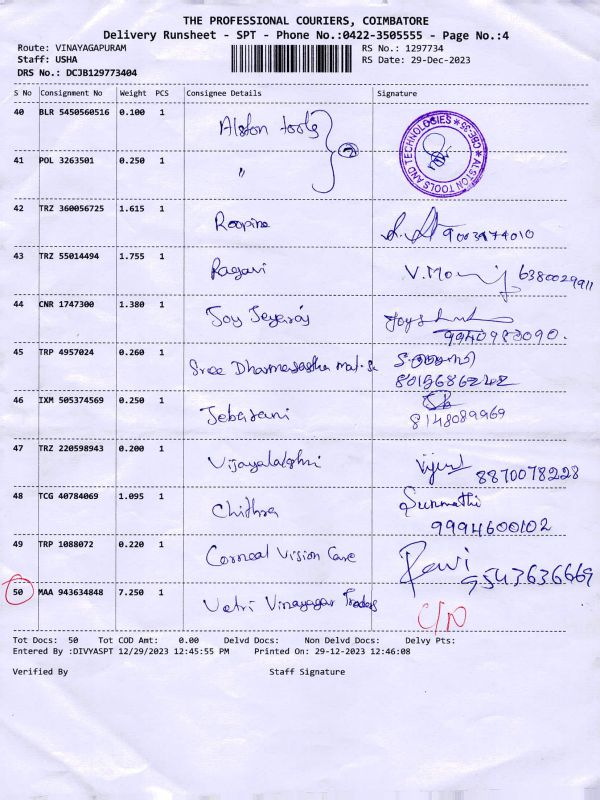 THE PROFESSIONAL COURIERS, COIMBATORE
Delivery Runsheet - SPT - Phone No.:0422-3505555 - Page No.:4
Route: VINAYAGAPURAM RS No.: 1297734
Staff: USHA RS Date: 29-Dec-2023
DRS No.: DCJB129773404
S No Consignment No Weight PCS Consignee Details Signature
40 BLR 5450560516 0.100 1 Alston tools
ALSTON TOOLS AND TECHNOLOGIES * CBE-35 *
41 POL 3263501 0.250 1 "
42 TRZ 360056725 1.615 1 Roopine
43 TRZ 55014494 1.755 1 Ragavi 6380029911
44 CNR 1747300 1.380 1 Joy Jeyaraj
9940983090.
45 TRP 4957024 0.260 1 Sree Dharmasastha mat. Sc
8015686242
46 IXM 505374569 0.250 1 Jebarani
8148089969
47 TRZ 220598943 0.200 1 Vijayalakshmi 8870078228
48 TCG 40784069 1.095 1 Chithra Sunmathi
9994600102
49 TRP 1088072 0.220 1 Corneal Vision Care Ravi
9543636669
50 MAA 943634848 7.250 1 Vetri Vinayagar Traders C/N
Tot Docs: 50 Tot COD Amt: 0.00 Delvd Docs: Non Delvd Docs: Delvy Pts:
Entered By :DIVYASPT 12/29/2023 12:45:55 PM Printed On: 29-12-2023 12:46:08
Verified By Staff Signature